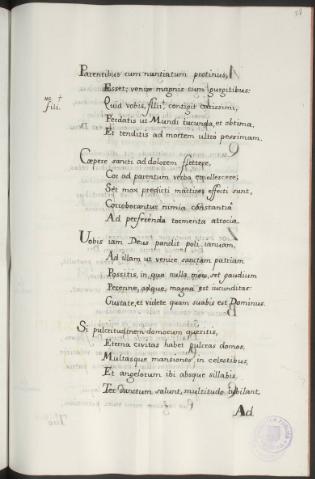 Parentibus cum nuntiatum protinus,
Esset; venire magnis cum gurgitibus:
Quid vobis, filii, contigit carissimi,
Perdatis ut Mundi iucunda, et obtima,
Et tenditis ad mortem ultro pessimam.
Ms. †
fili.
Cœpere sancti ad dolorem flettere,
Cor ad parentum verba emollescere;
Set mox predicti mattires effecti sunt,
Corroborantur nimia constantia
Ad perferenda tormenta atrocia.
Uobis iam Deus pandit poli ianuam,
Ad illam ut venire sanctam patriam
Possitis, in qua nulla mors, set gaudium
Perenne, adque, magna est iucunditas
Gustate, et videte quam suabis est Dominus.
Si pulcritudinem domorum queritis,
Eterna civitas habet pulcras domos,
Multasque mansiones in celestibus,
Et angelorum ibi absque sillabis
Ter Sanctum salunt, multitudo iubilant,
Ad